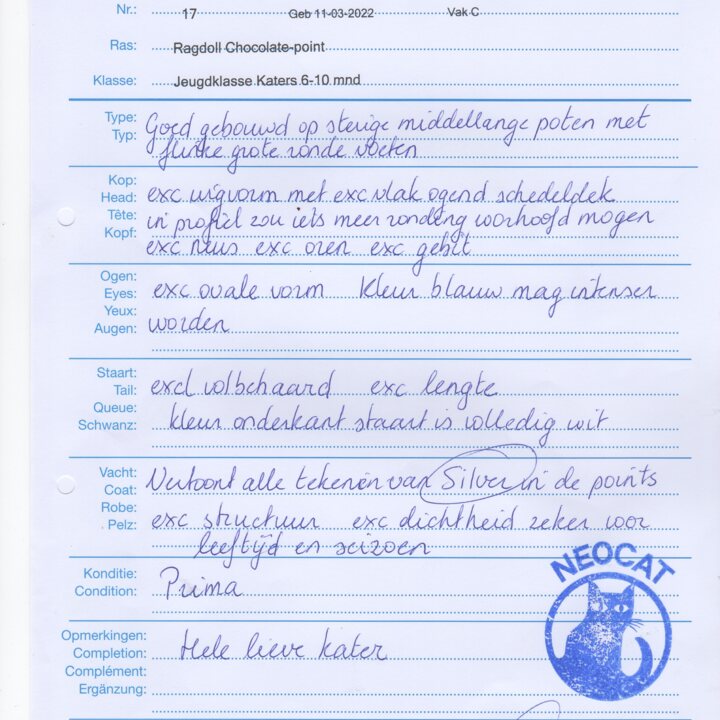 Nr.: 17 Geb 11-03-2022 Vak C
Ras: Ragdoll Chocolate-point
Klasse: Jeugdklasse Katers 6-10 mnd
Type: Goed gebouwd op stevige middellange poten met
Typ: flinke grote ronde voeten
Kop:
Head: exc wigvorm met exc vlak ogend schedeldek
Tête: in profiel zou iets meer ronding voorhoofd mogen
Kopf: exc neus exc oren exc gebit
Ogen:
Eyes: exc ovale vorm kleur blauw mag intenser
Yeux:
Augen: worden
Staart:
Tail: excl volbehaard exc lengte
Queue:
Schwanz: kleur onderkant staart is volledig wit
Vacht:
Coat: Vertoont alle tekenen van Silver in de points
Robe:
Pelz: exc structuur exc dichtheid zeker voor
leeftijd en seizoen
Konditie:
Condition: Prima
Opmerkingen:
Completion: Hele lieve kater
Complément:
Ergänzung:
NEOCAT